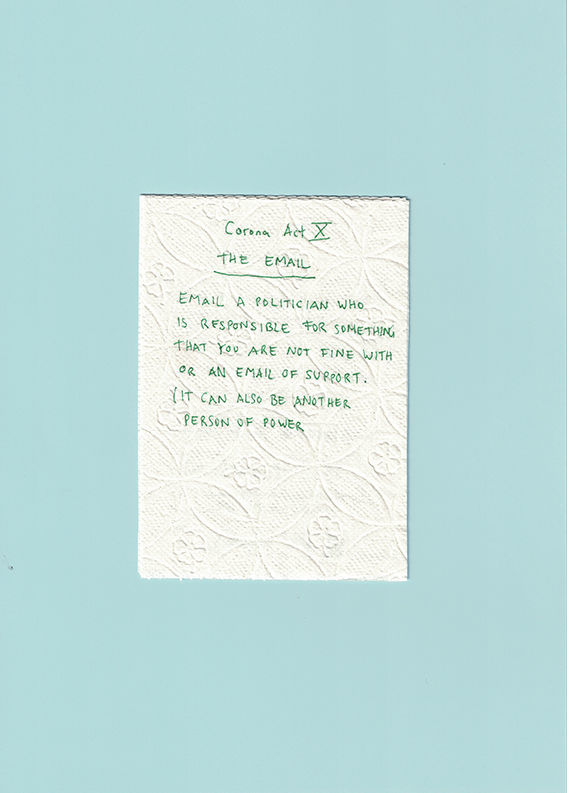 Corona Act X
THE EMAIL
EMAIL A POLITICIAN WHO
IS RESPONSIBLE FOR SOMETHING
THAT YOU ARE NOT FINE WITH
OR AN EMAIL OF SUPPORT.
(IT CAN ALSO BE ANOTHER
PERSON OF POWER